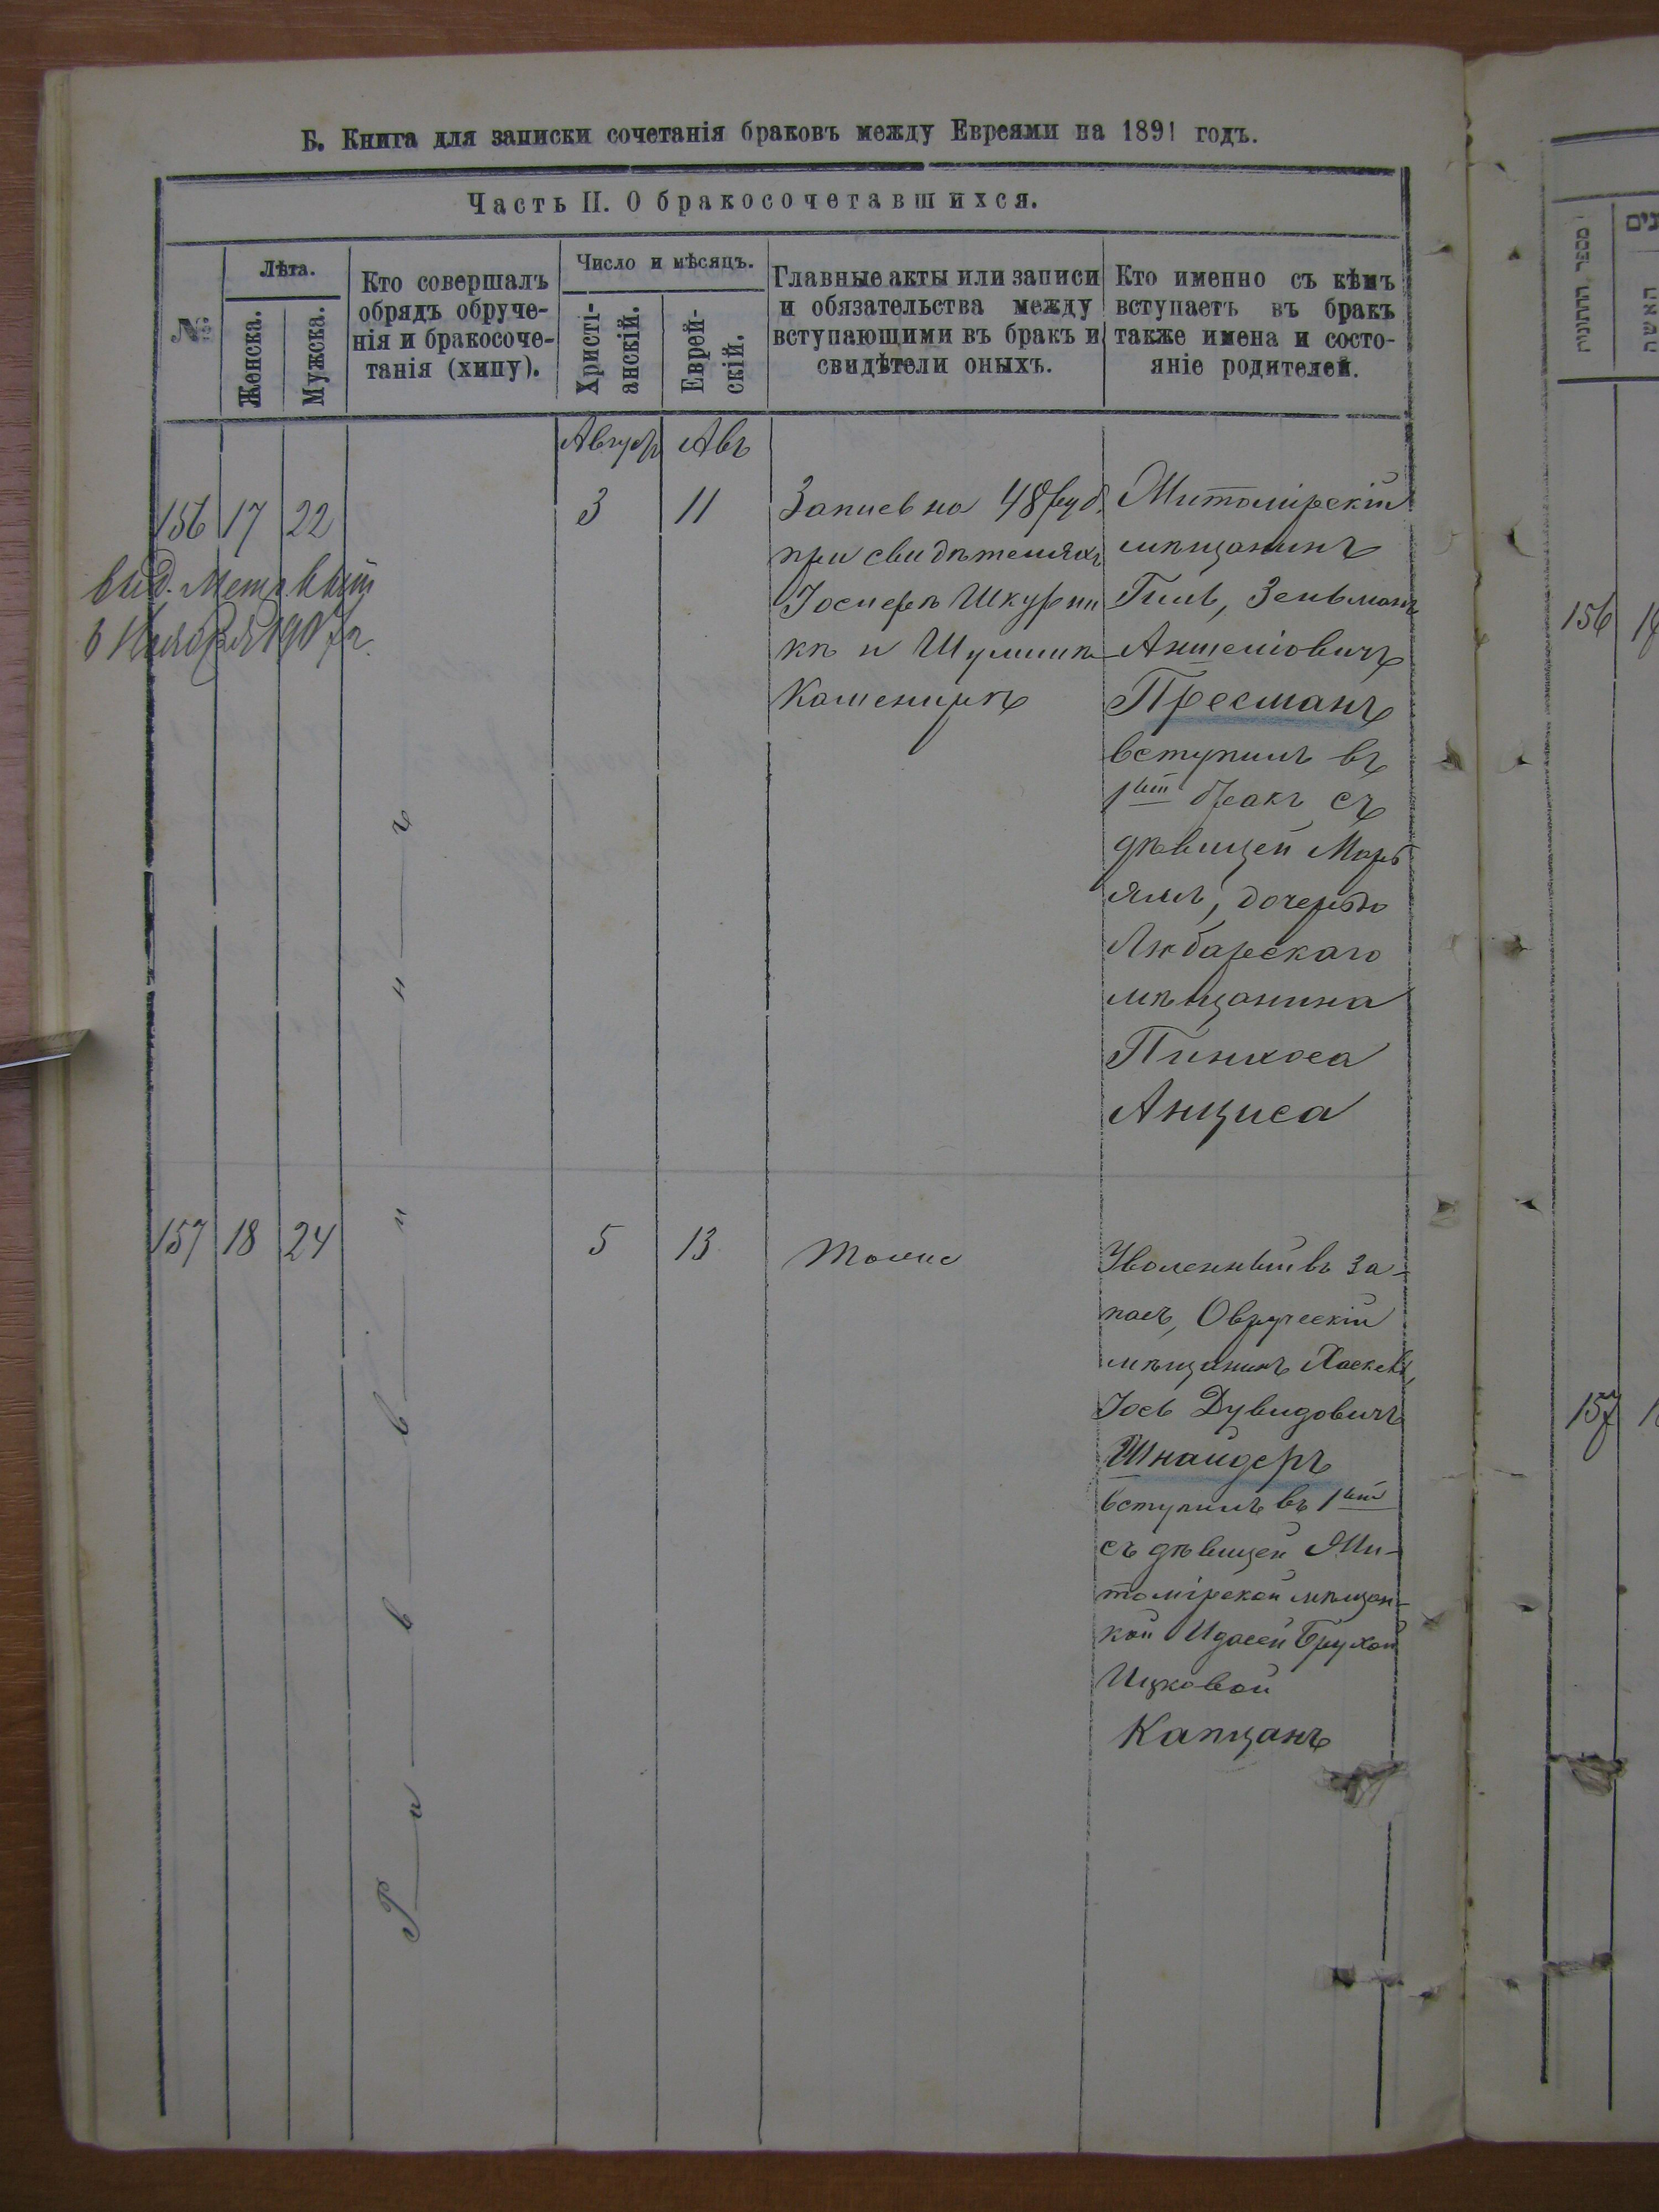 Б. Книга для записки сочетанія браковъ между Евреями на 1891 годъ.
Часть II. О бракосочетавшихся.
№
Лѣта.
Женска.
Мужска.
Кто совершалъ
обрядъ обруче-
нія и бракосоче-
танія (хипу).
Число и мѣсяцъ.
Христі-
анскій.
Еврей-
скій.
Главные акты или записи
и обязательства между
вступающими въ бракъ и
свидѣтели оныхъ.
Кто именно съ кѣмъ
вступаетъ въ бракъ
также имена и состо-
яніе родителей.
Августъ
Авъ
156 17 22
3 11
Записъ на 48 руб.
при свидѣтеляхъ
Іосиефѣ Шкурни
кѣ и Шулимѣ
Кошенирѣ
Житомірскій
мѣщанинъ
Гиль, Зельманъ
Аншеліовичъ
Пресманъ
вступилъ въ
1ый бракъ съ
дѣвицей Марь
ямъ, дочерью
Любарскаго
мѣщанина
Пинхоса
Анциса
выд. Метр. вып
6 Ноября 1907 г.
Раввинъ
157 18 24
5 13
тоже
Уволенный въ за-
пасъ, Овручскій
мѣщанинъ Хаскель,
Іось Дувидовичъ
Шнайдеръ
вступилъ въ 1ый
съ дѣвицей Жи-
томірской мѣщан-
кой Идасей Брухой
Ицковой
Капцанъ
מספר החתונות
האשה
156
157